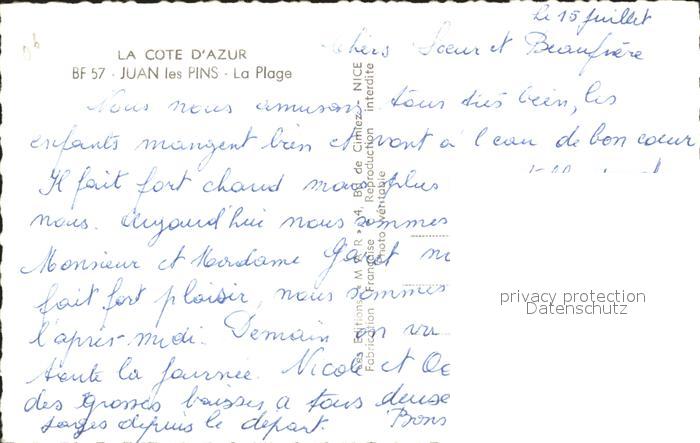 Le 15 juillet
Chers Soeur et Beaufrère
LA COTE D'AZUR
BF 57 - JUAN les PINS - La Plage
Nous nous amusons tous très bien, les
enfants mangent bien et vont à l'eau de bon coeur
Il fait fort chaud mais plus
nous. Aujourd'hui nous sommes
Monsieur et Madame
fait fort plaisir, nous sommes
l'après-midi. Demain on
toute la journée. Nicole et
des grosses baisses a tous deuse
sages depuis le départ. Bons
Les Editions "MAR", 4, Bd de Cimiez - NICE
Fabrication Française Reproduction interdite
Photo véritable
privacy protection
Datenschutz